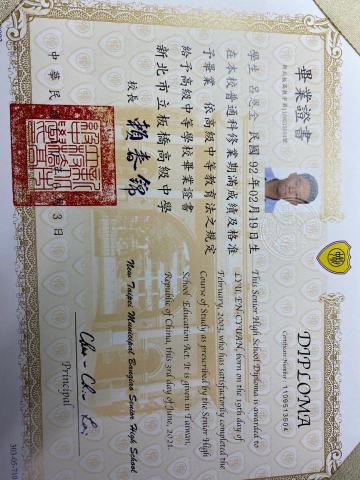 畢業證書
學生 呂恩全 民國92年02月19日生
在本校普通科修業期滿成績及格准
予畢業 依高級中等教育法之規定
給予高級中等學校畢業證書
新北市立板橋高級中學
校長 賴春錦
中華民
月 3 日
DIPLOMA
Certificate Number: 1109513604
This Senior High School Diploma is awarded to
LYU, EN-CYUAN born on the 19th day of
February, 2003, who has satisfactorily completed the
Course of Study as prescribed by the Senior High
School Education Act. It is given in Taiwan,
Republic of China, this 3rd day of June, 2021.
New Taipei Municipal Banqiao Senior High School
Principal